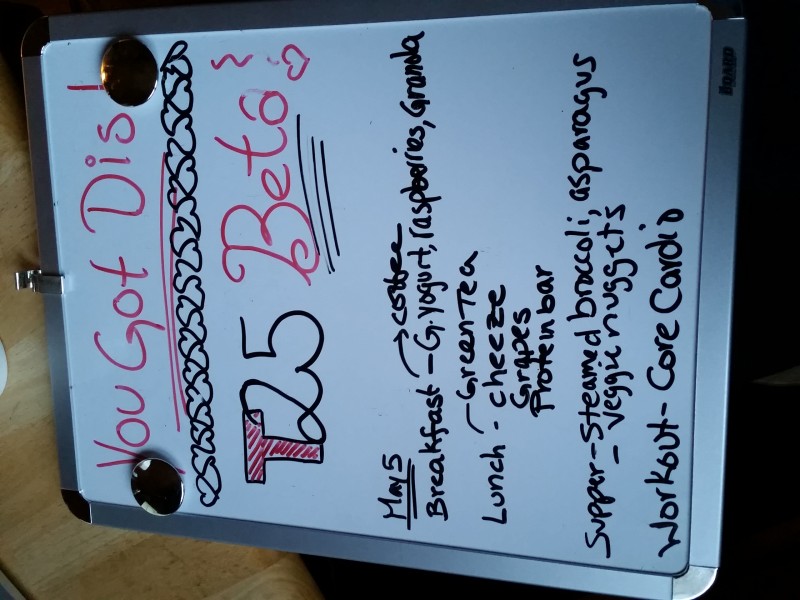 You Got Dis!
T25 Beta!
May 5
coffee
Breakfast - G. yogurt, raspberries, Granola
Green Tea
Lunch - cheeze
Grapes
Protein bar
Supper - Steamed broccoli, asparagus
- veggie nuggets
Workout - Core Cardio
BOARD